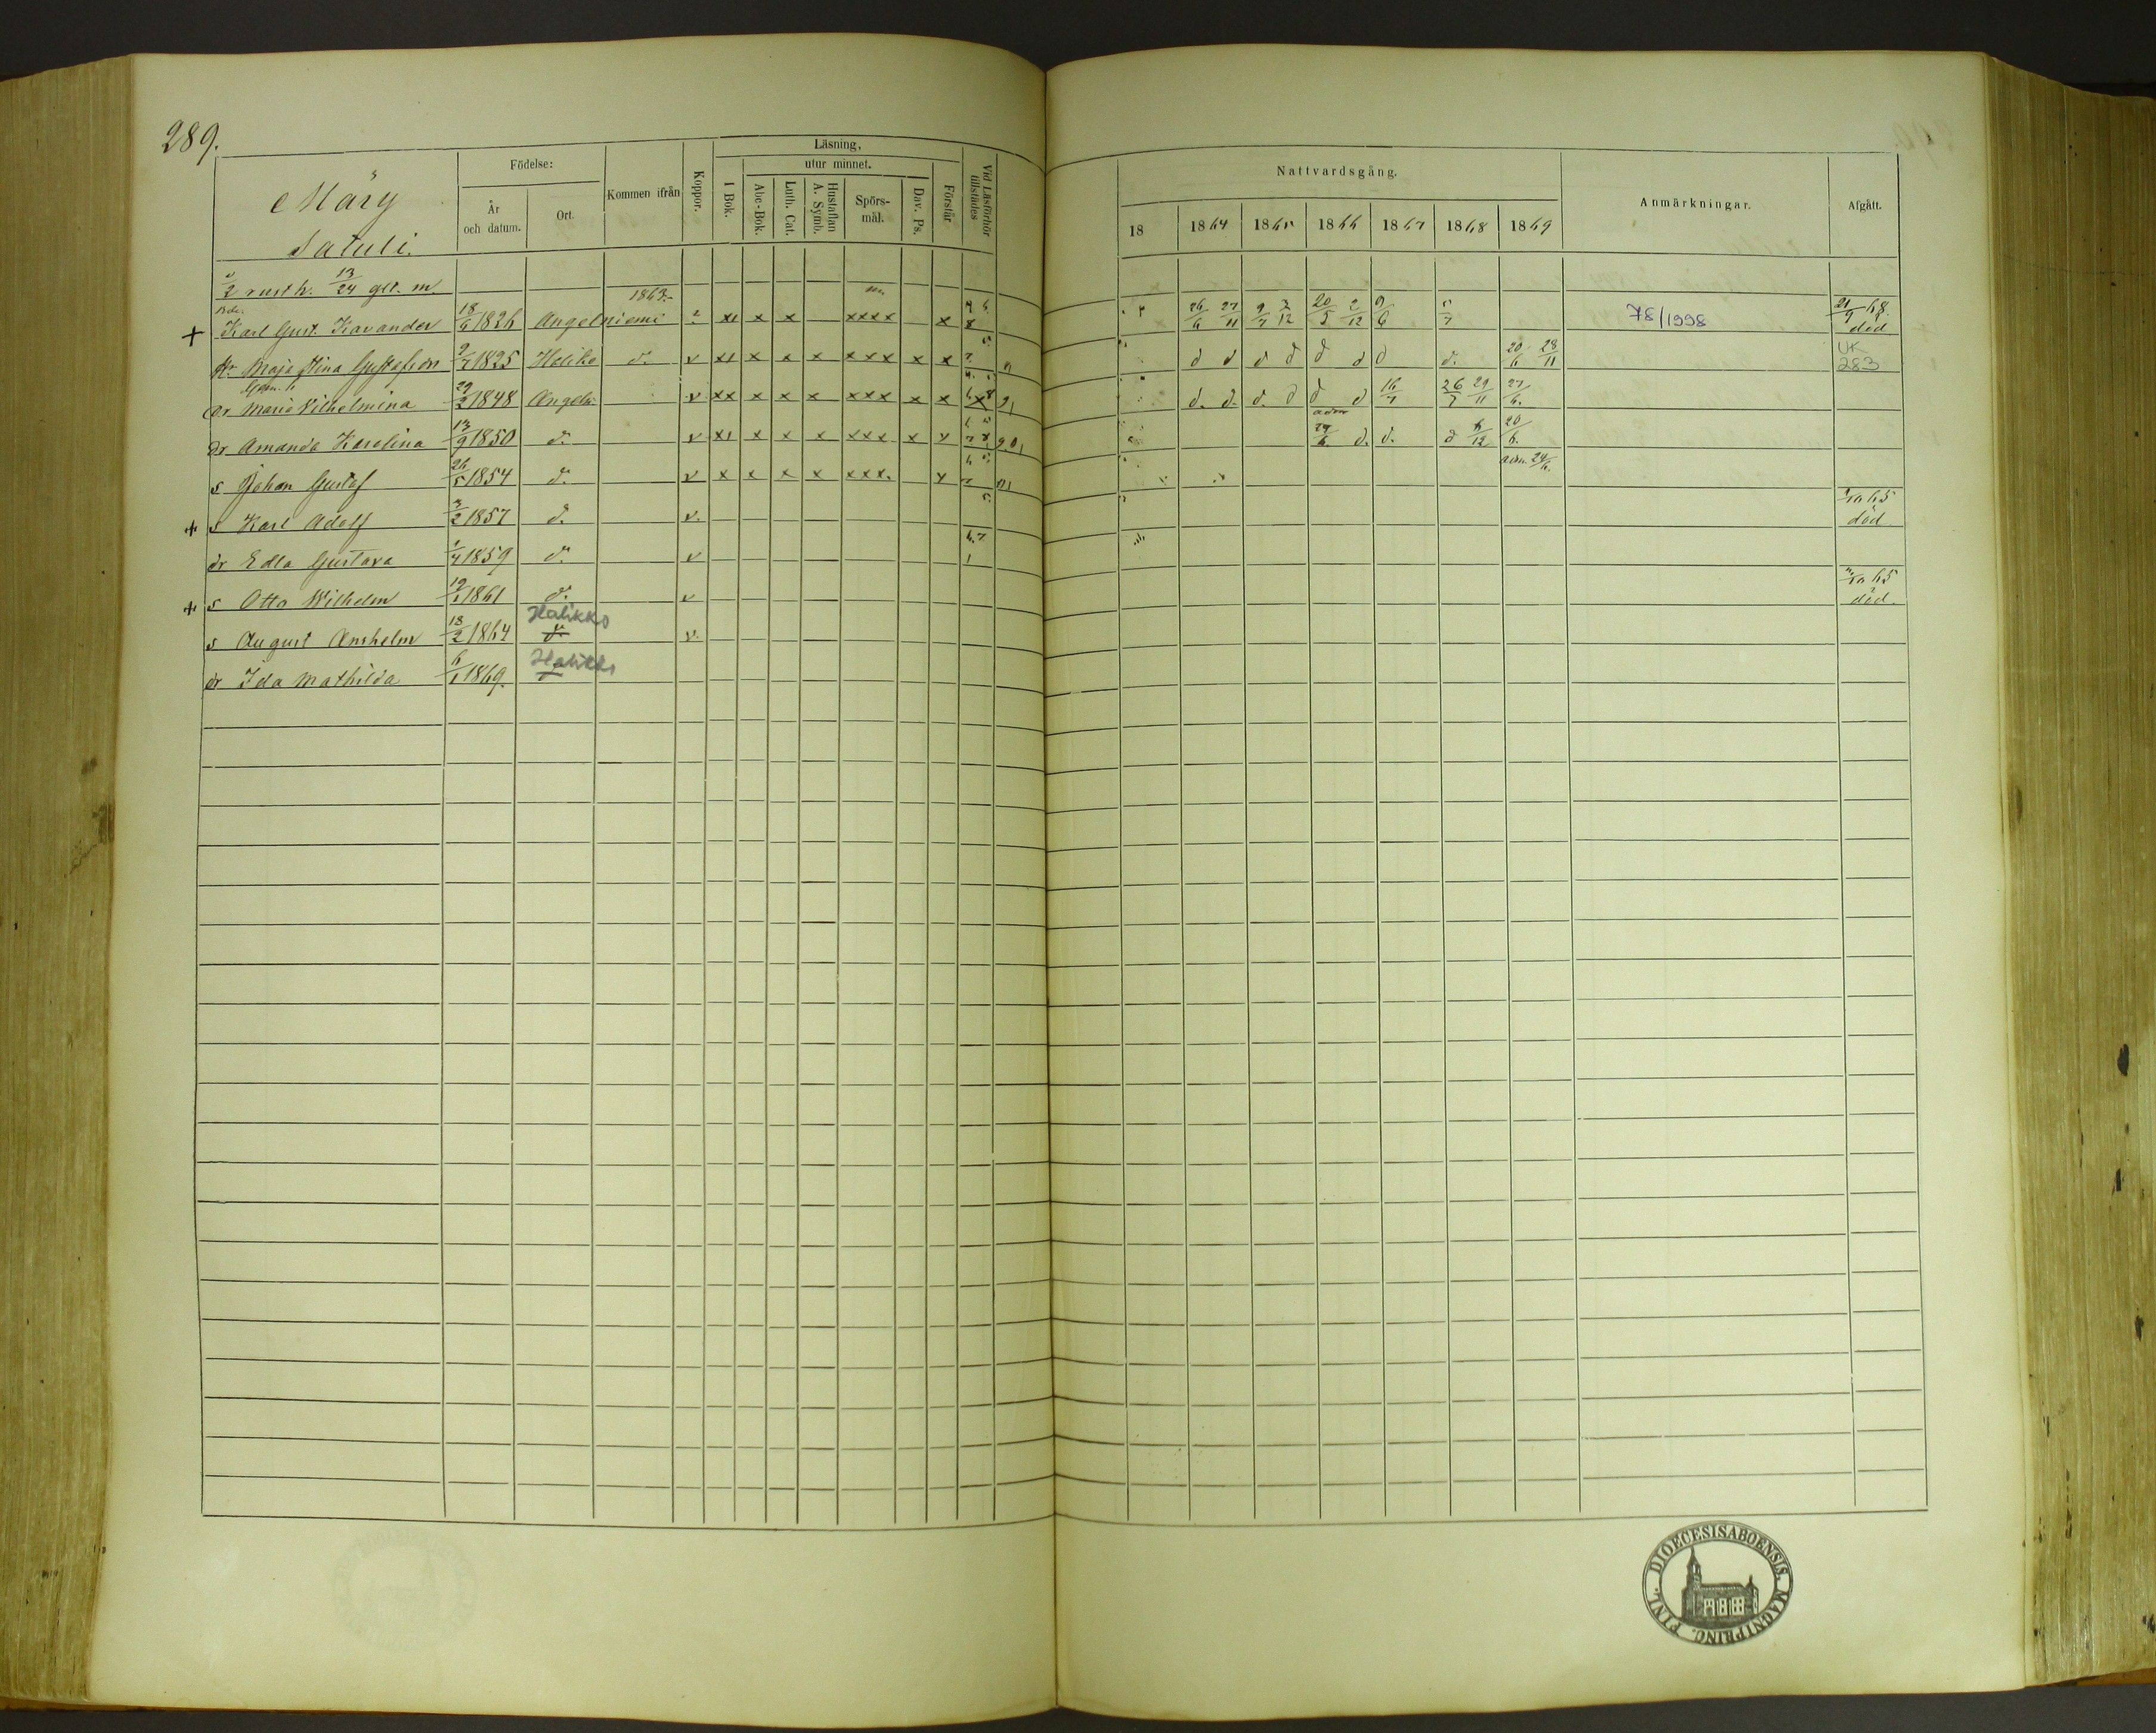 289.
Märy
Satuli.
Födelse:
År
och datum.
Ort.
Kommen ifrån
Koppor.
Läsning.
utur minnet.
I Bok.
Abc-Bok.
Luth. Cat.
Hustaflan
A. Symb.
Spörs-
mål.
Dav. Ps.
Förstår
Vid Läsförhör
tillstädes
Nattvardsgång.
18
1864
1865
1866
1867
1868
1869
Anmärkningar.
Afgått.
1/2 rusth. 13/24 gl. m.
+ Karl Gust. Kavander 18/6 1826 Angelniemi 1863. xı x x xxxx x 26/6 27/11 9/7 3/12 20/5 2/12 9/6 78/1998 21/9 68. död
Maja Stina Gustafsdr 9/7 1825 Haliko d. v xı x x x xxx x x d d d d d d d d. 20/6 28/11 UK 283
dr Maria Vilhelmina 29/2 1848 Angeln. v xx x x x xxx x x d. d. d. d d d 16/7 26/7 29/11 27/6.
dr Amanda Karolina 13/9 1850 d. v xı x x x xxx x v adm 24/6 d. d. d 6/12 20/6.
s Johan Gustaf 26/5 1854 d. v x x x x xxx. v adm. 24/6.
+ s Karl Adolf 3/2 1857 d. v. 65 död
dr Edla Gustava 1/4 1859 d. v
+ s Otto Wilhelm 19/1 1861 d. v 65 död.
s August Anshelm 18/2 1864 d. Halikko v.
dr Ida Mathilda 6/1 1869. Halikko
DIOECESISABOENSIS. MAGNIPRINC. FINL.